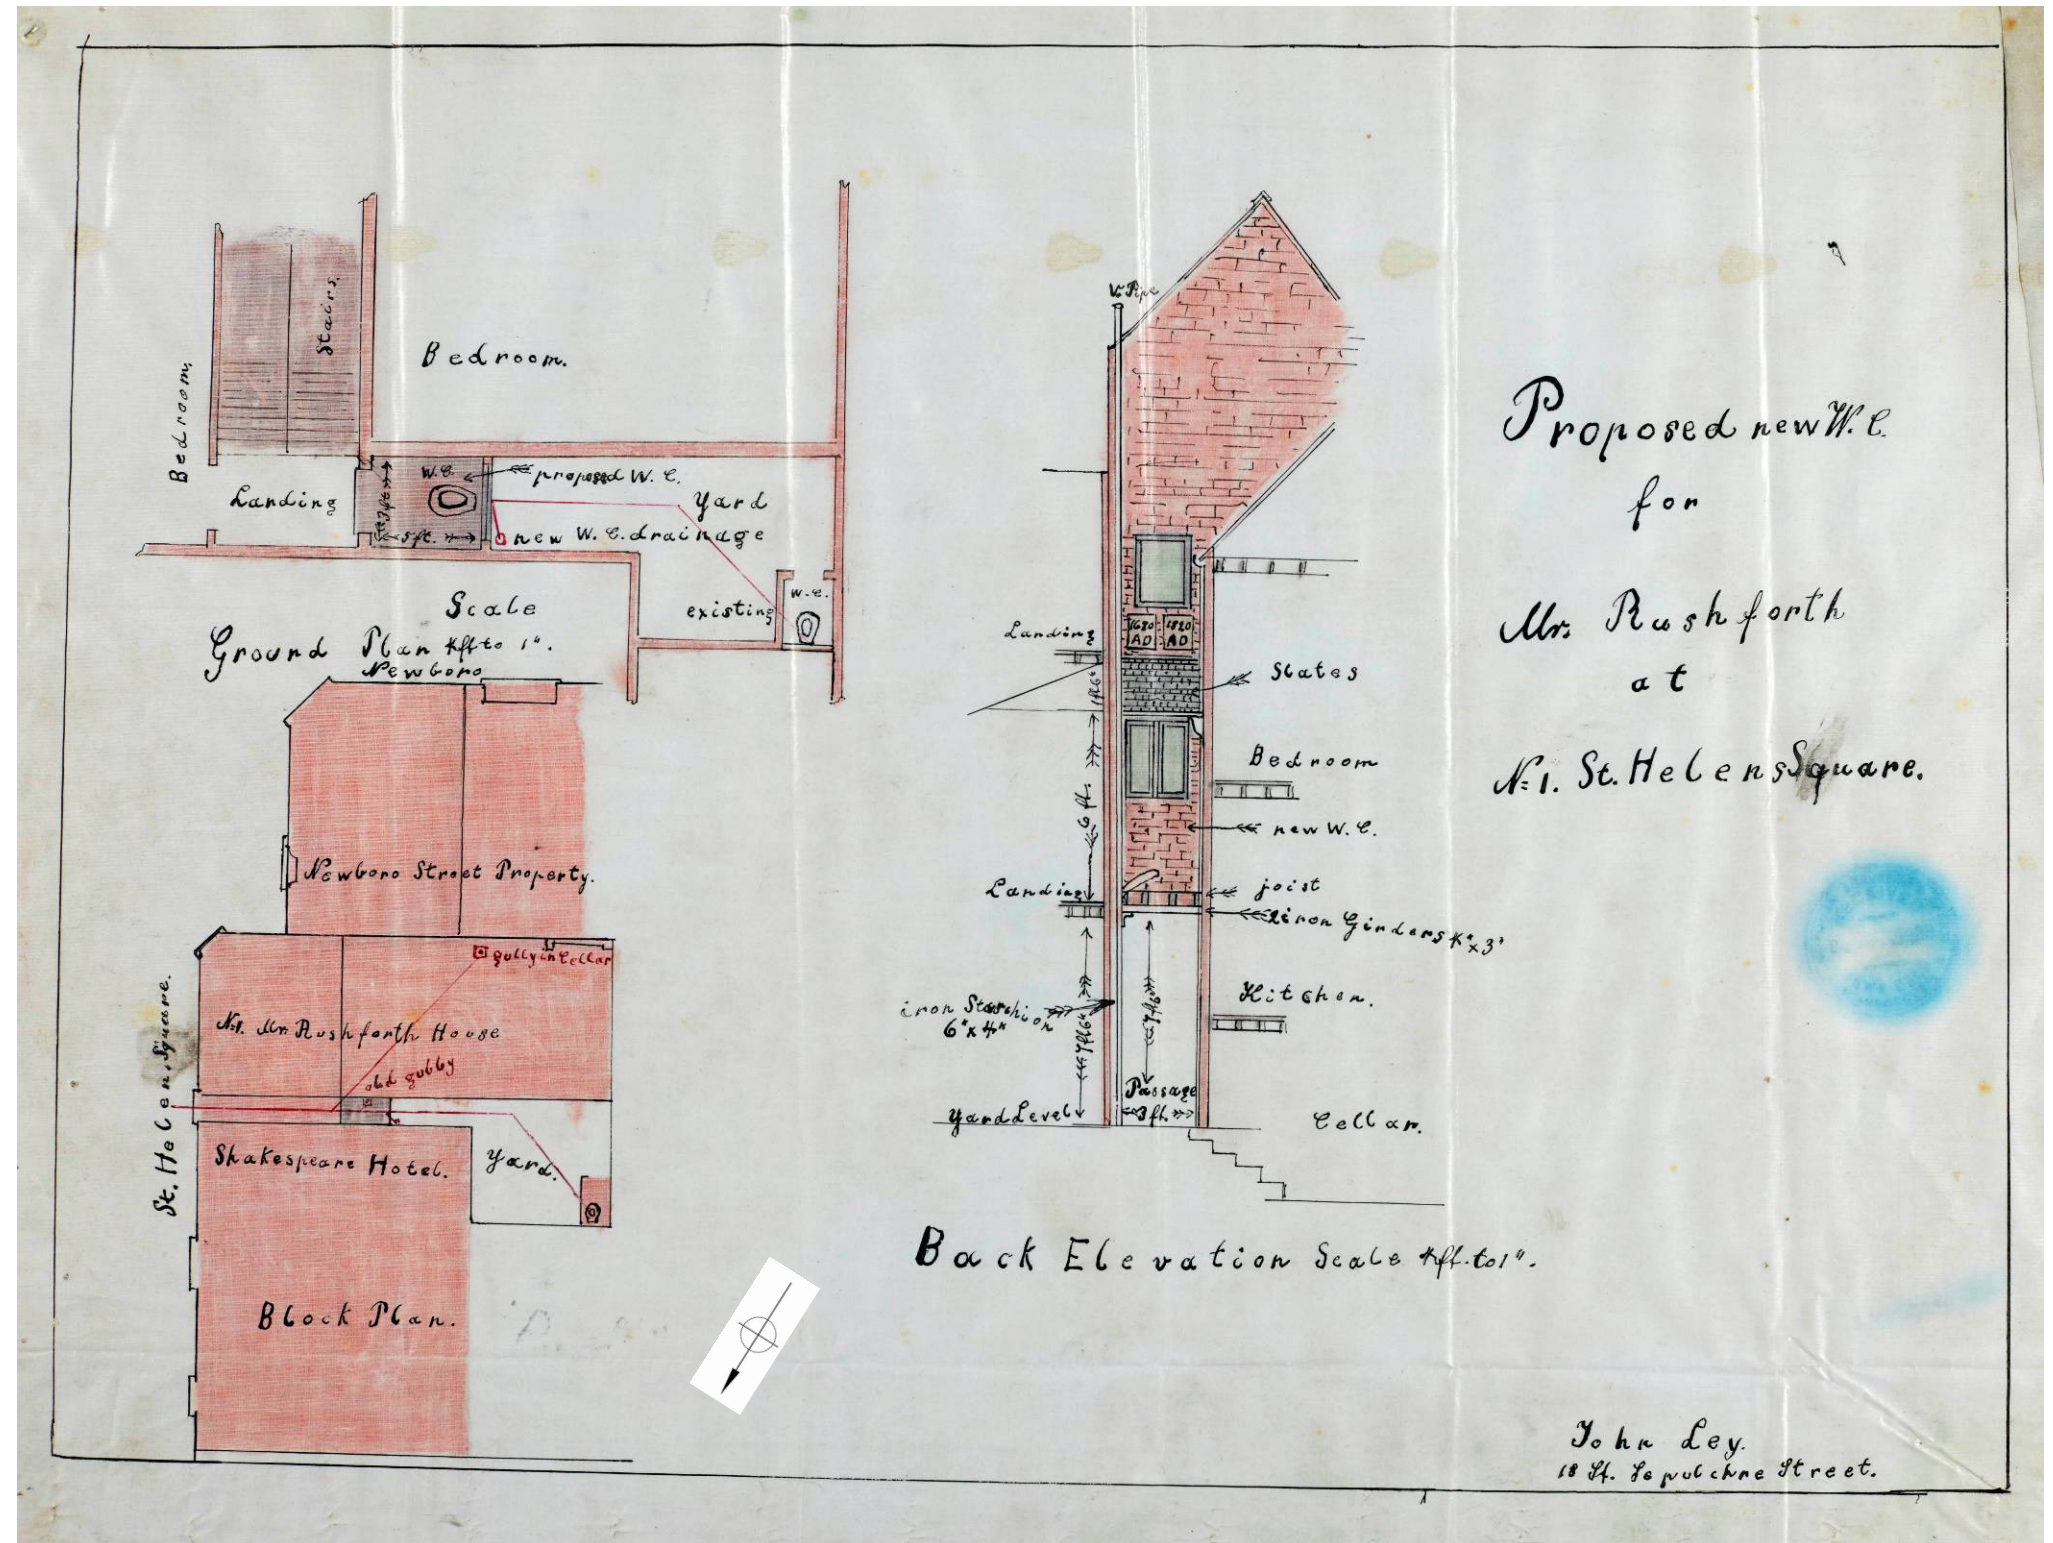 Bedroom.
Stairs.
Bedroom.
Landing
W.C.
proposed W.C.
7ft
5ft.
Yard
new W.C. drainage
existing
W.C.
Scale
Ground Plan 4ft to 1".
Newboro
Newboro Street Property.
gully in Cellar
No 1. Mr. Rushforth House
old gully
St. Helens Square.
Shakespeare Hotel.
Yard.
Block Plan.
V. Pipe
1680 AD
1820 AD
Landing
Slates
1ft 6"
Bedroom
6 ft.
new W.C.
Landing
joist
2 iron Girders 4" x 3"
Kitchen.
iron Stanchion
6" x 4"
7ft 6"
7ft 6"
Passage
3ft.
Yard Level
Cellar.
Back Elevation Scale 4ft. to 1".
Proposed new W.C.
for
Mr. Rushforth
at
No 1. St. Helens Square.
John Ley.
18 St. Sepulchre Street.